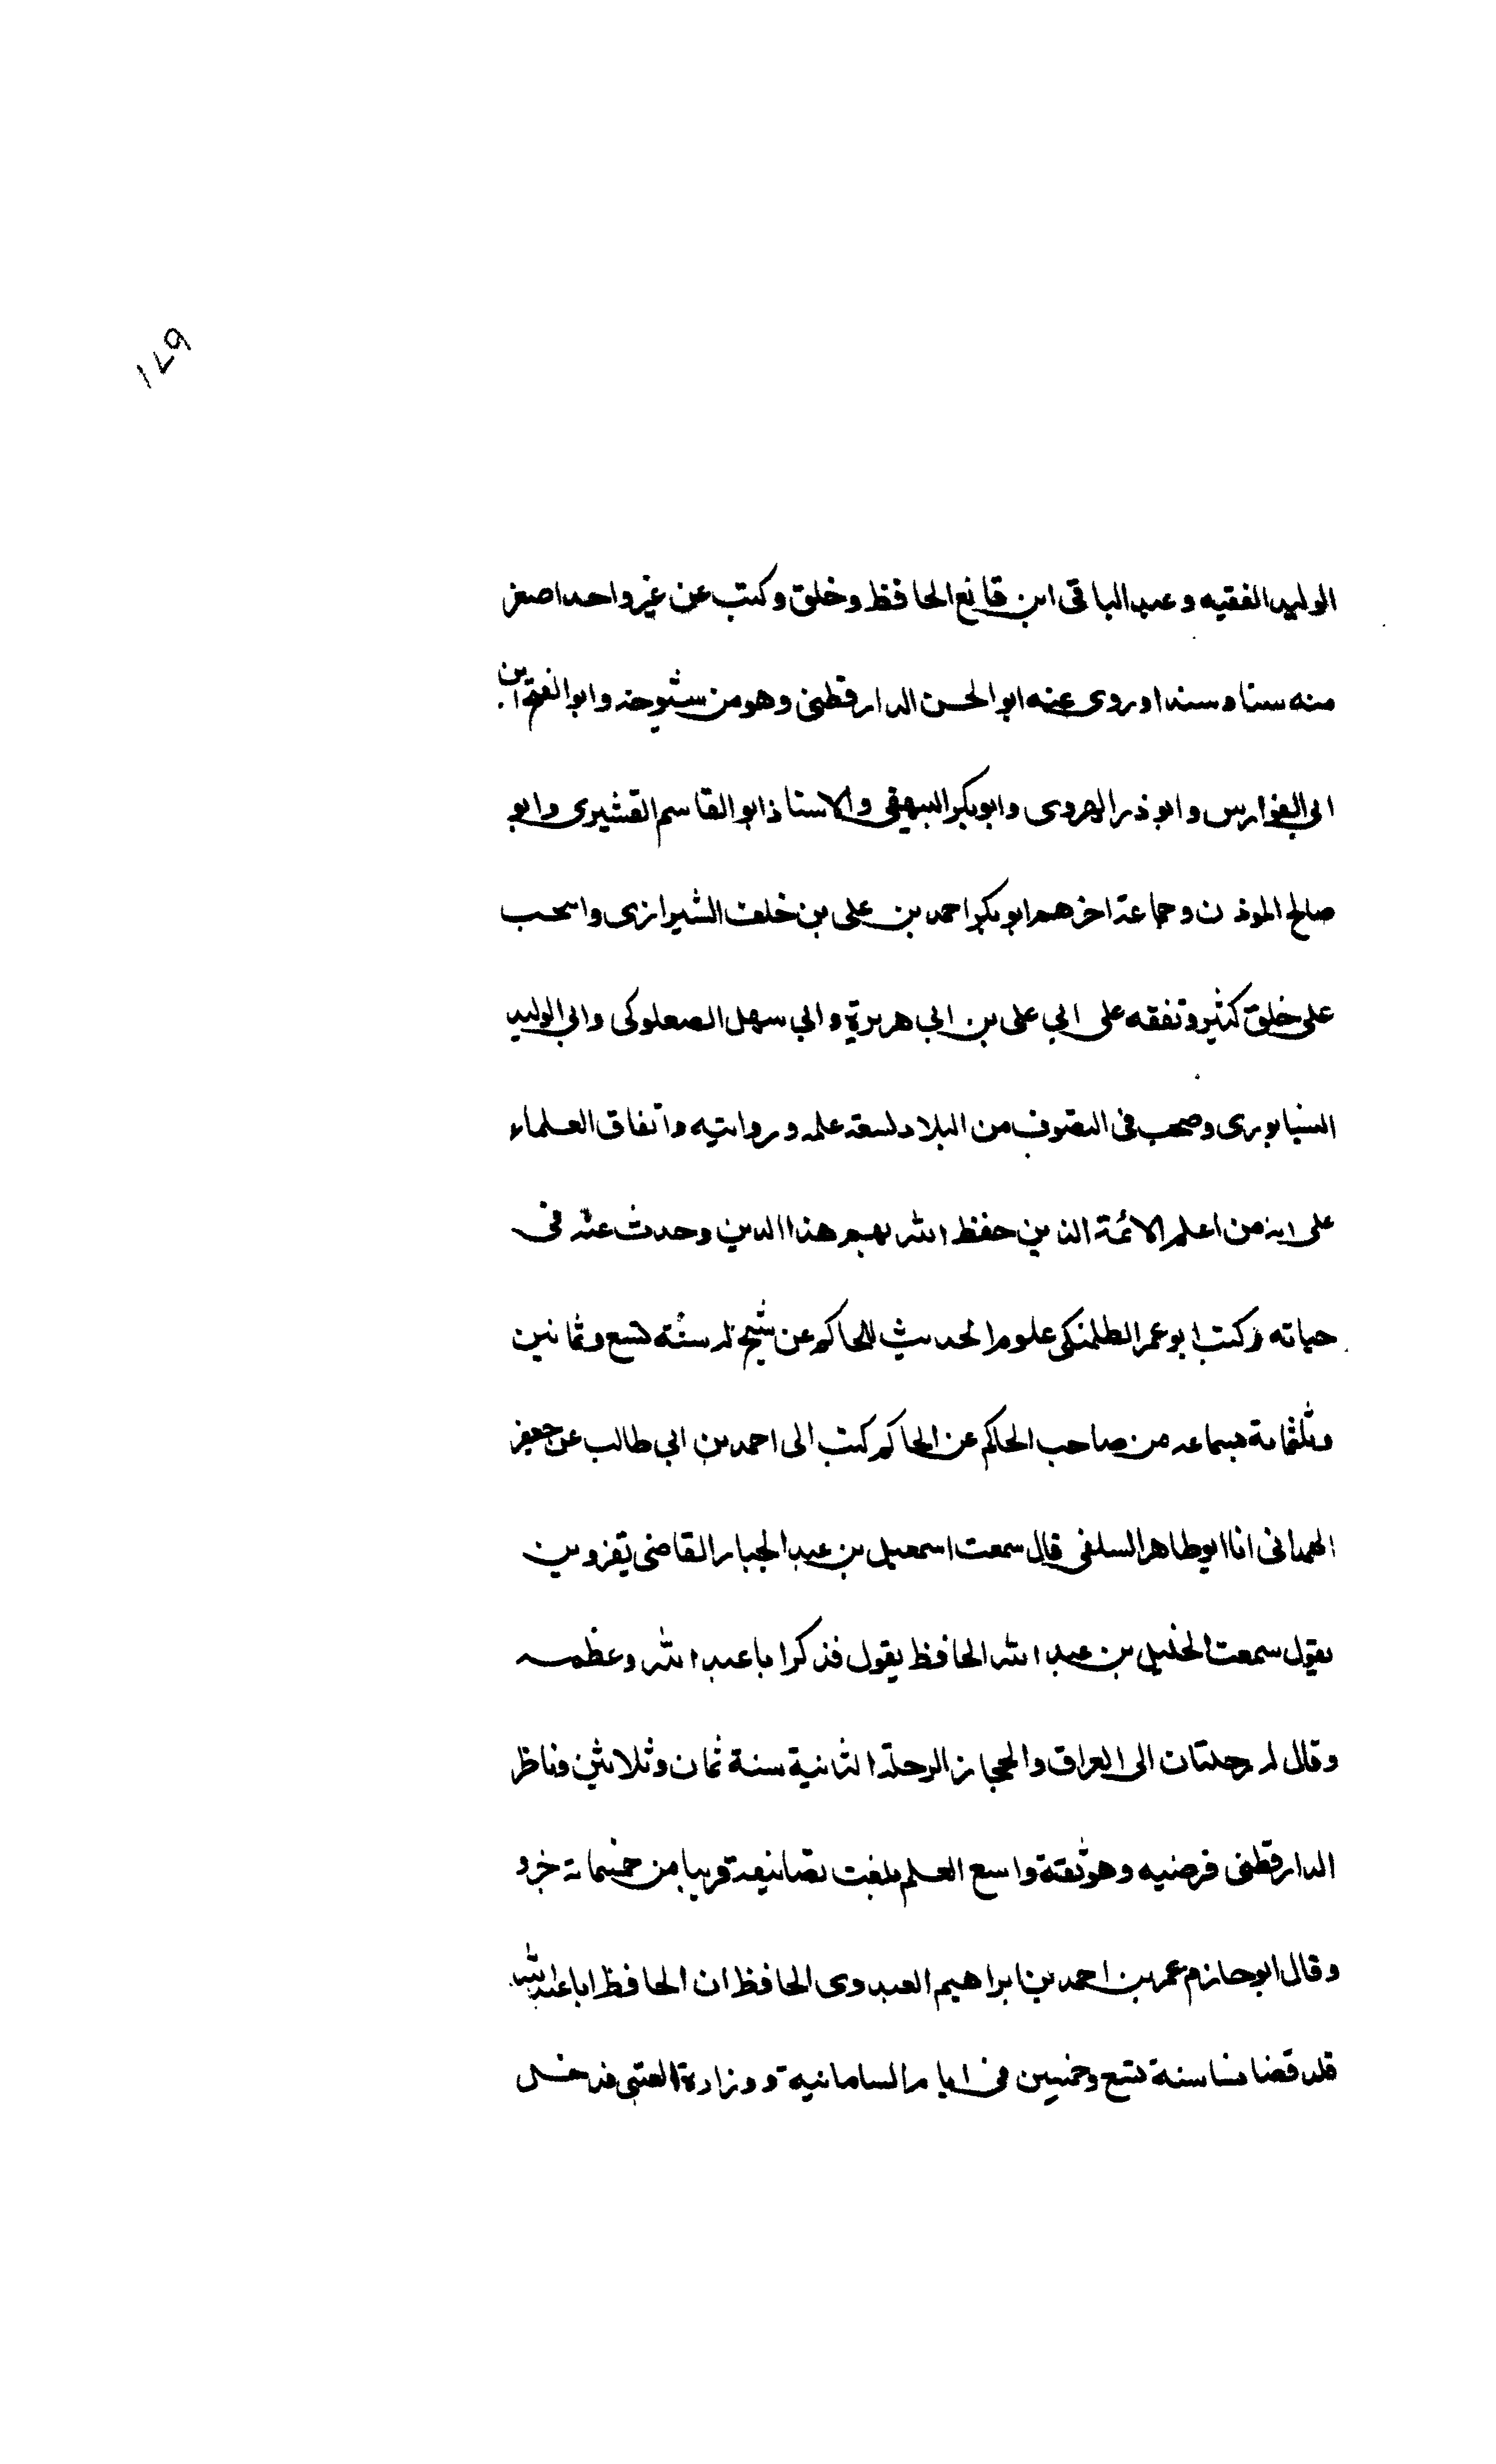 ١٤٩
الوليد الفقيه وعبد الباقى ابن قانع الحافظ وخلق وكتب عن غير واحد اصغر
منه سنا وسندا وروى عنه ابو الحسن الدارقطنى وهو من شيوخه وابو الفتح ابن
ابى الفوارس وابو ذر الهروى وابو بكر البيهقى والاستاذ ابو القاسم القشيرى وابو
صالح الموذن وجماعة اخرهم ابو بكر احمد بن على بن خلف الشيرازى وانتخب
على خلق كثير وتفقه على ابي على بن ابي هريرة وابي سهل الصعلوكى وابي الوليد
النيسابورى وصحب فى التصوف من البلاد لسعة علمه وروايته واتفاق العلماء
على انه من اعلم الائمة الذين حفظ الله بهم هذا الدين وحدث عنه فى
حياته وكتب ابو عمر الطلمنكى علوم الحديث للحاكم عن شيخ له سنة تسع وثمانين
وثلثماىة بسماعه من صاحب الحاكم عن الحاكم كتب الى احمد بن ابي طالب عن جعفر
الهمدانى انا ابو طاهر السلفى قال سمعت اسمعيل بن عبد الجبار القاضى بقزوين
يقول سمعت الخليل بن عبد الله الحافظ يقول فذكر ابا عبد الله وعظمه
وقال له رحلتان الى العراق والحجاز الرحلة الثانية سنة ثمان وثلاثين وناظر
الدارقطنى فرضيه وهو ثقة واسع العلم بلغت تصانيفه قريبا من خمسماىة جزو
وقال ابو حازم عمر بن احمد بن ابراهيم العبدوى الحافظ ان الحافظ ابا عبد الله
قلد قضا نسا سنة تسع وخمسين فى ايام السامانية ووزارة العتبى فدخل